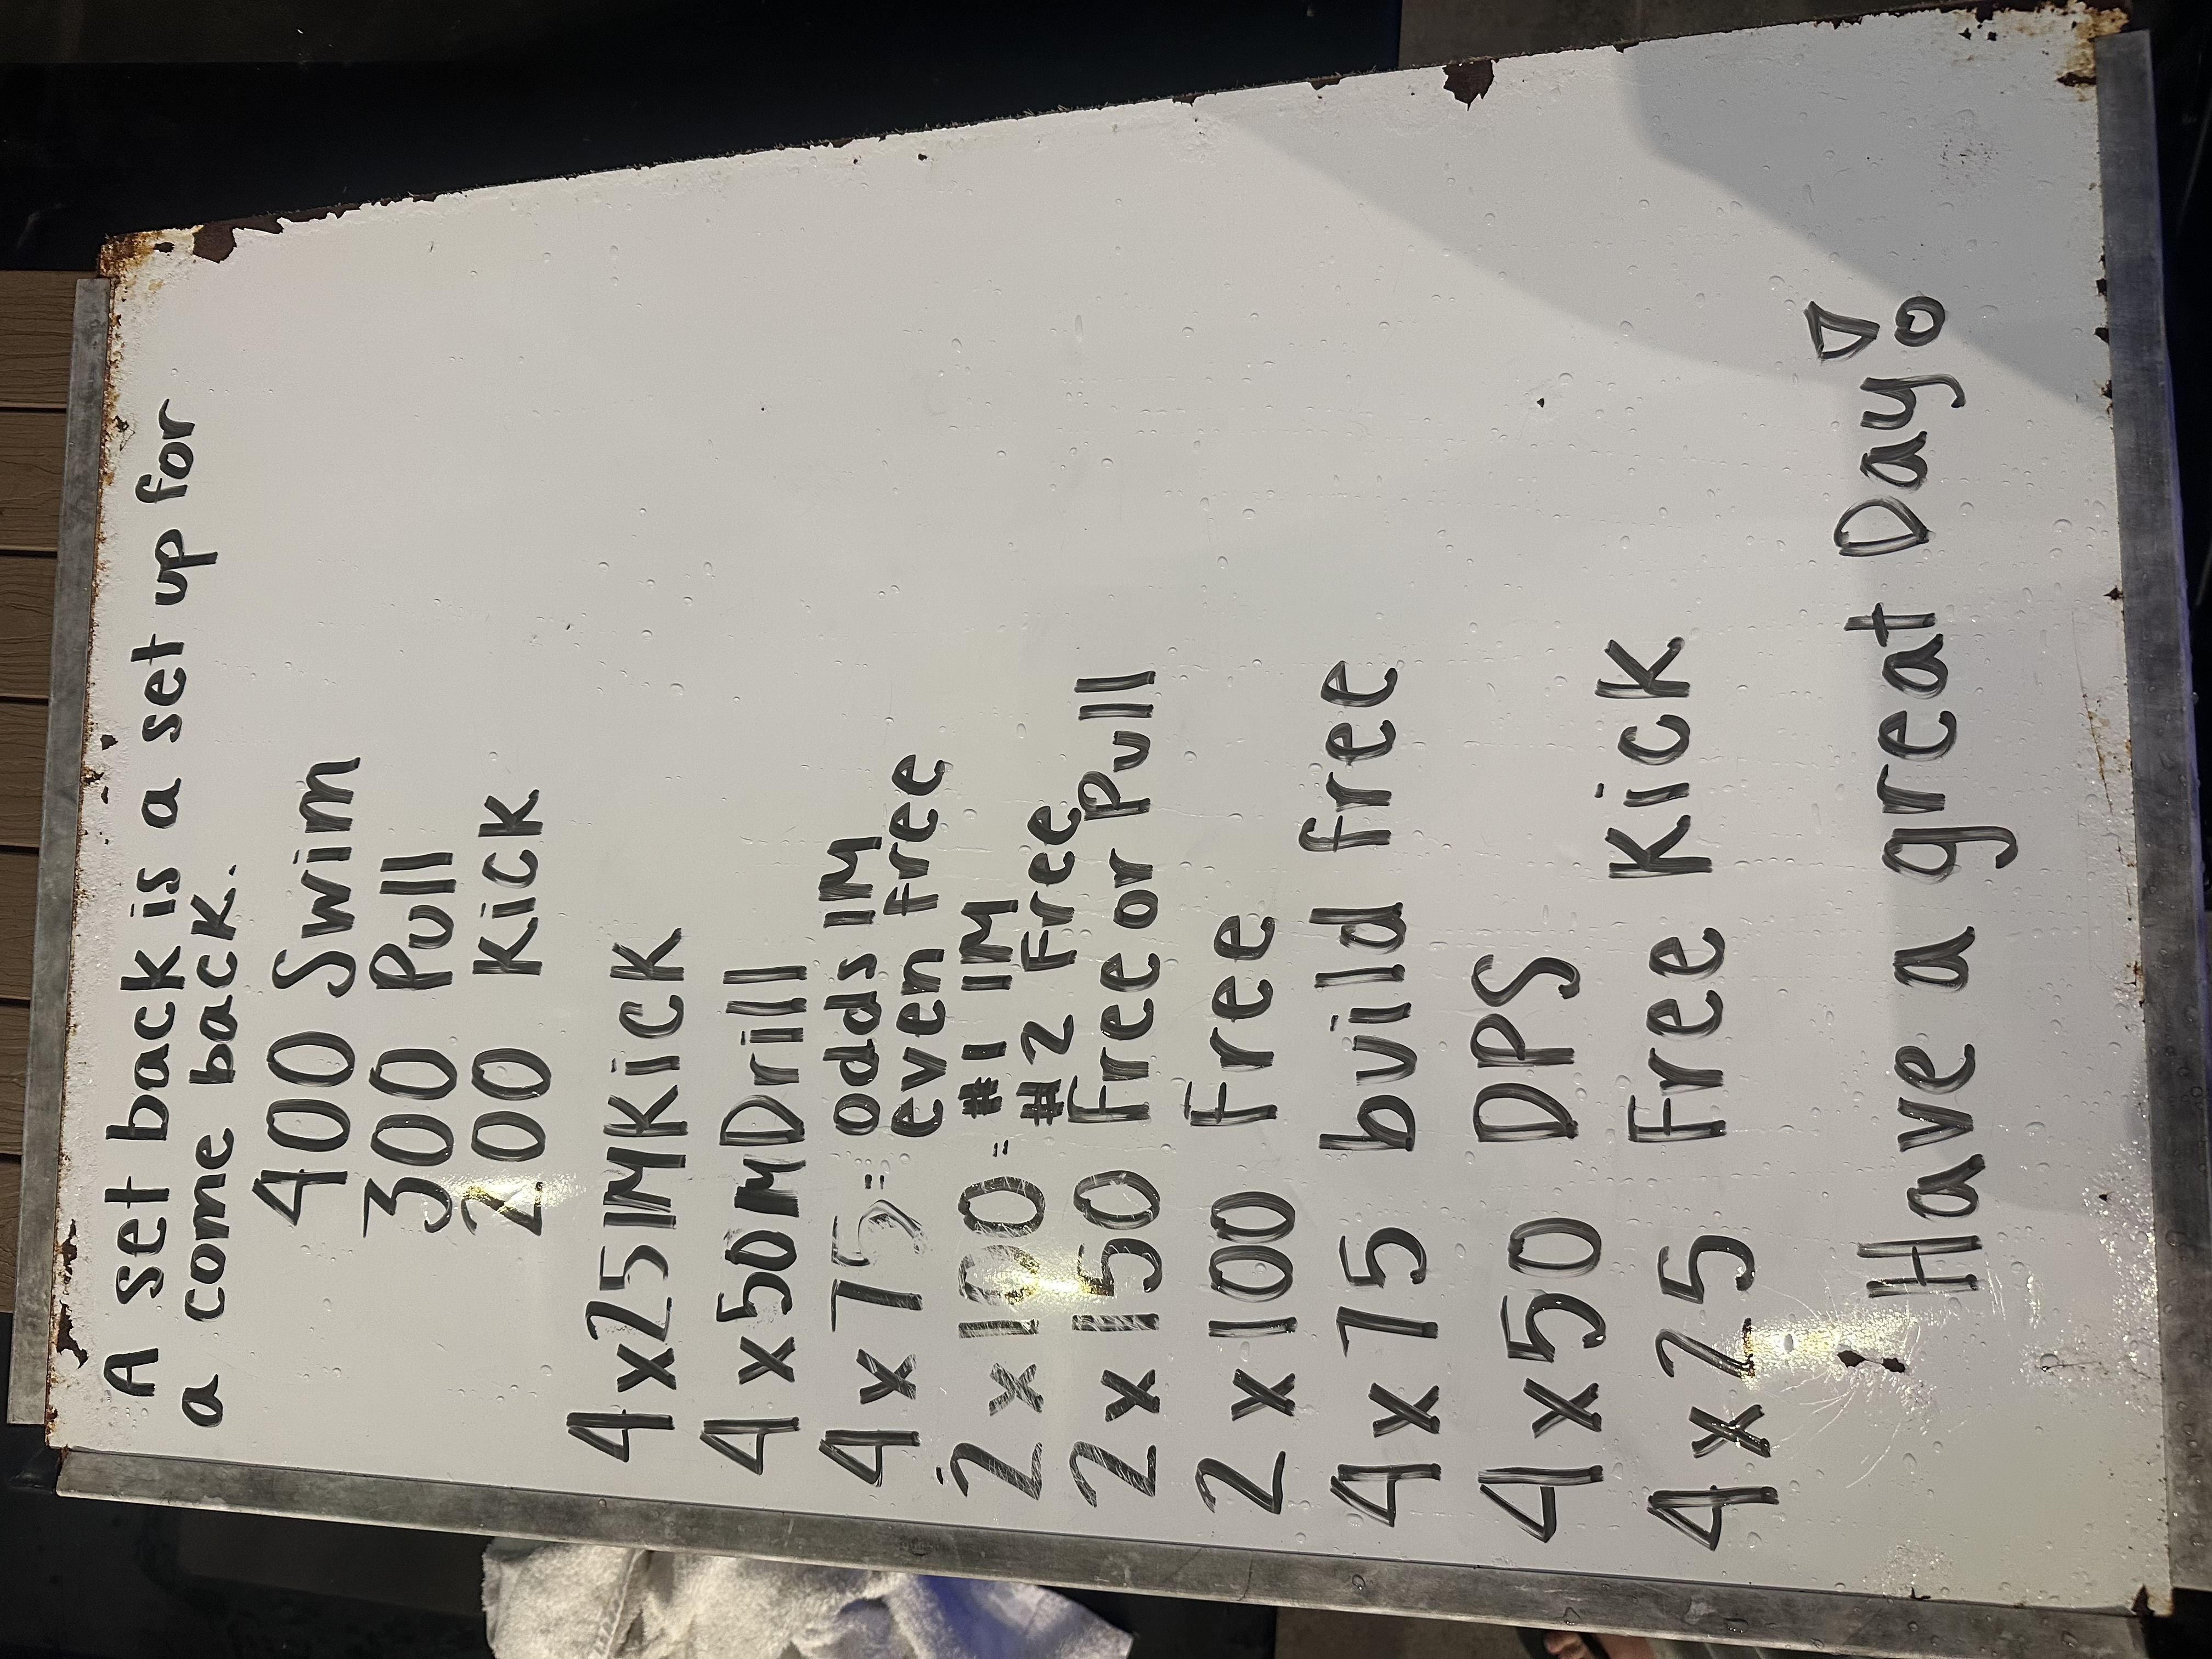 A set back is a set up for
a come back.
400 Swim
300 Pull
200 Kick
4x25 IM Kick
4x50 M Drill
4x75= odds IM
even Free
2x100= #1 IM
#2 Free
2x150 Free or Pull
2x100 Free
4x75 build free
4x50 DPS
4x25 Free Kick
! Have a great Day!